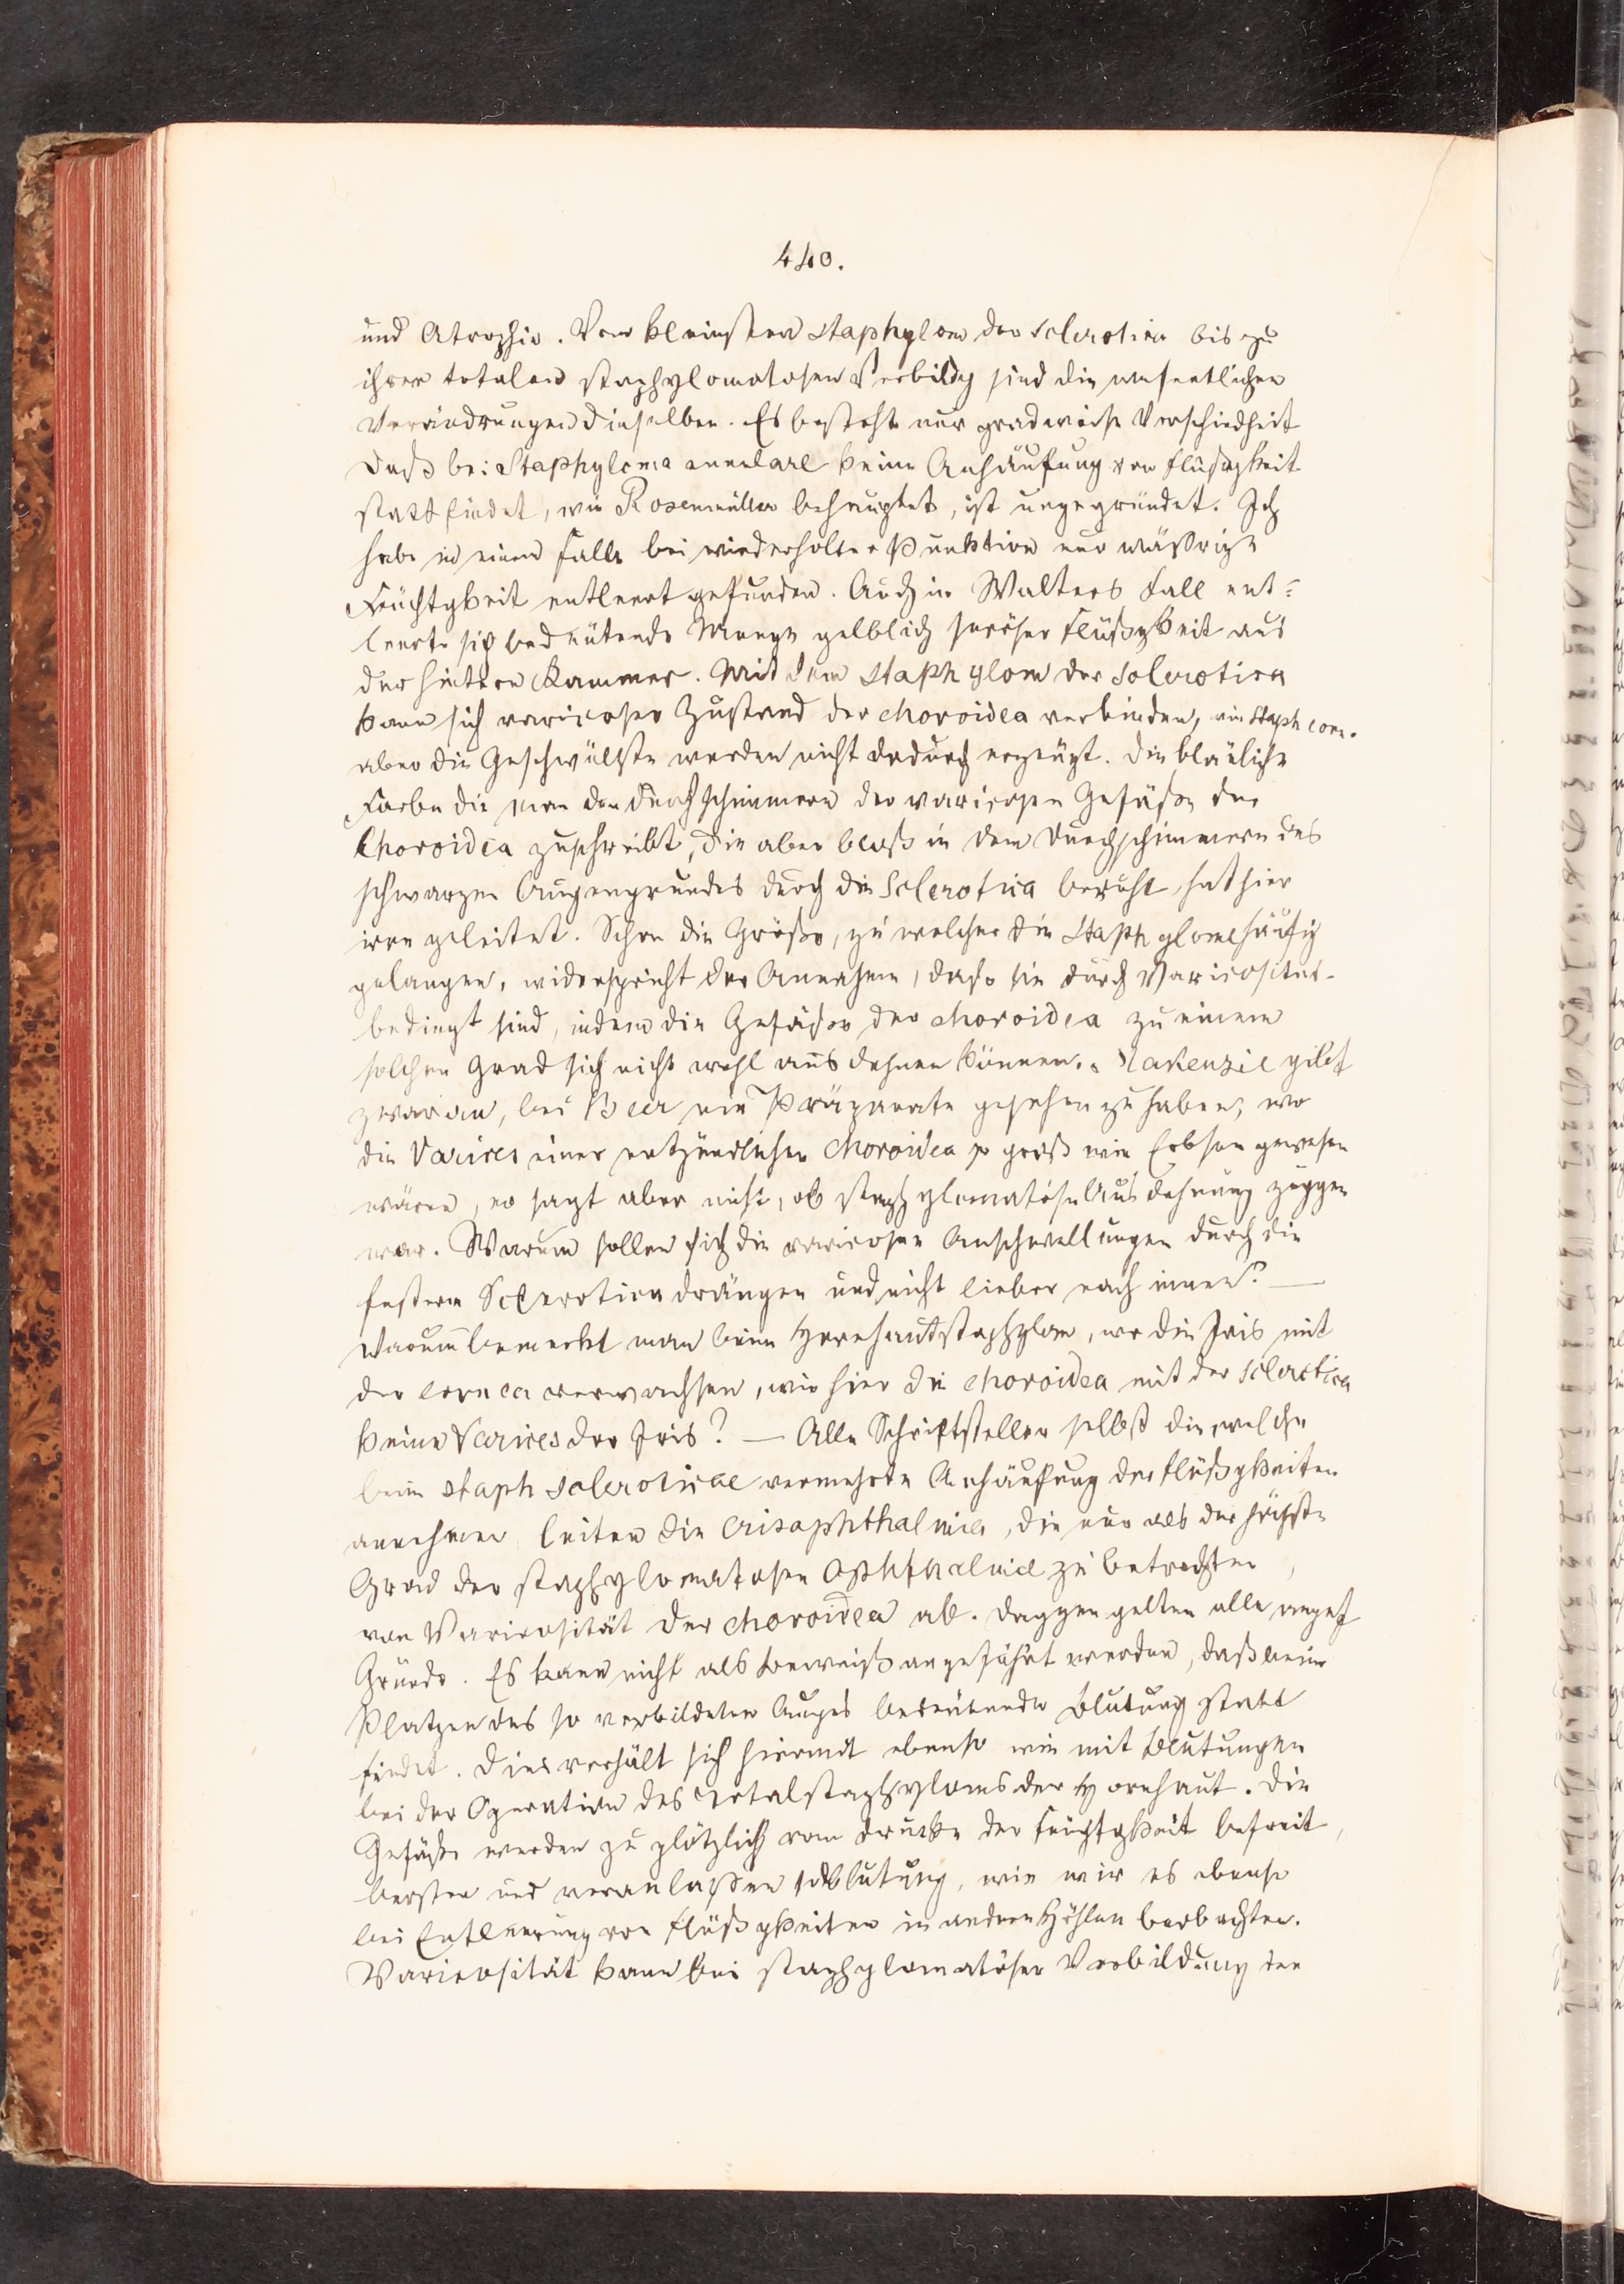 440.
und Atrophie. Vom kleinsten Staphylom der Sclerotica bis zu
ihrer totalen staphylomatosen Verbildg sind die wesentlichen
Verändrungen dieselben. Es besteht nur gradweise Verschiedheit
Daß bei Staphyloma annulare keine Anhäufung von Flüßigkeit
statt findet, wie Rosenmüller behauptet, ist ungegründet. Ich
habe in einem Falle bei wiederholter Punktion nur wäßrige
Feuchtgkeit entleert gefunden. Auch in Walters Fall ent-
leerte sich bedeutende Menge gelblich seröser Flüßgkeit aus
der hintern Kammer. Mit dem Staphylom der Sclerotica
kann sich varicoser Zustand der choroidea verbinden, wie Staph corn.
aber die Geschwülste werden nicht dadurch erzeugt. Die bläuliche
Farbe die man dem Durchschimmern der varicosen Gefäße der
Choroidea zuschreibt, die aber bloß in dem Durchschimmern des
schwarzen Augengrundes durch die Sclerotica beruht, hat hier
irre geleitet. Schon die Größe, zu welcher die Staphylome häufig
gelangen, widerspricht der Annahme, daß sie durch Varicositet
bedingt sind, indem die Gefäße der choroidea zu einem
solchen Grad sich nicht wohl ausdehnen können. Makenzie gibt
zwar an, bei Beer ein Präparate gesehen zu haben, wo
die Varices einer entzündlichen Choroidea so groß wie Erbsen gewesen
wären, er sagt aber nicht, ob staphylomatöse Ausdehnung zuggen
war. Warum sollen sich die varicosen Anschwellungen durch die
festere Sclerotica drängen und nicht lieber nach innen? —
Warum bemerkt man beim Hornhautstaphylom, wo die Iris mit
der cornea verwachsen, wie hier die choroidea mit der Sclerotica
keine Varices der Iris? — Alle Schriftsteller selbst die welche
beim Staph scleroticae vermehrte Anhäufung der Flüßgkeiten
annehmen leiten die Cirsophthalmia, die nur als der höchste
Grad der staphylomatosen Ophthalmie zu betrachten,
von Varicosität der choroidea ab. Daggen gelten alle angef
Gründe. Es kann nicht als Beweiß angeführt werden, daß beim
Platzen des so verbildeten Auges bedeutende Blutung statt
findet. Dies verhält sich hiermit ebenso wie mit Blutungen
bei der Operation des Totalstaphyloms der Hornhaut. Die
Gefäße werden zu plötzlich vom Drucke der Feuchtgkeit befreit,
bersten und veranlaßen Blutung, wie wir es ebenso
bei Entleerung von Flüßgkeiten in andern Höhlen beobachten.
Varicosität kann bei staphylomatöser Verbildung der